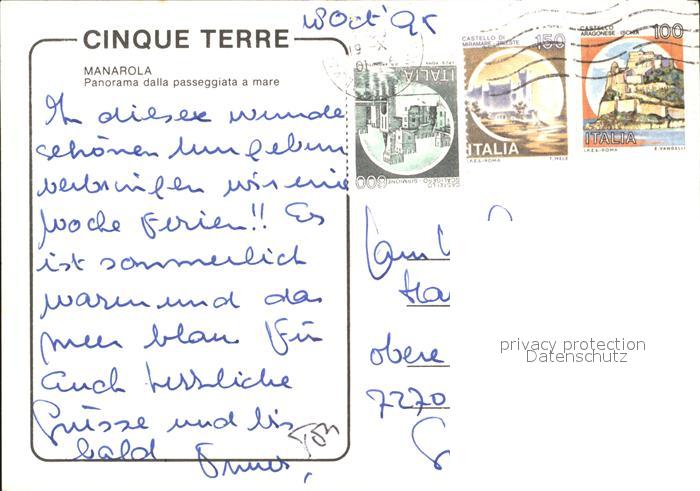 18 Oct' 95
CINQUE TERRE
MANAROLA
Panorama dalla passeggiata a mare
In dieser wunder
schönen Umgebung
verbringen wir eine
Woche Ferien!! Es
ist sommerlich
warm und das
Meer blau. Für
Euch herzliche
Grüsse und bis
bald
CASTELLO
SCALIGERO - SIRMIONE
600
ITALIA
CASTELLO DI
MIRAMARE - TRIESTE
150
ITALIA
I.P.Z.S. - ROMA
T. MELE
CASTELLO
ARAGONESE - ISCHIA
100
ITALIA
I.P.Z.S. - ROMA
E. VANGELLI
obere
7270
privacy protection
Datenschutz